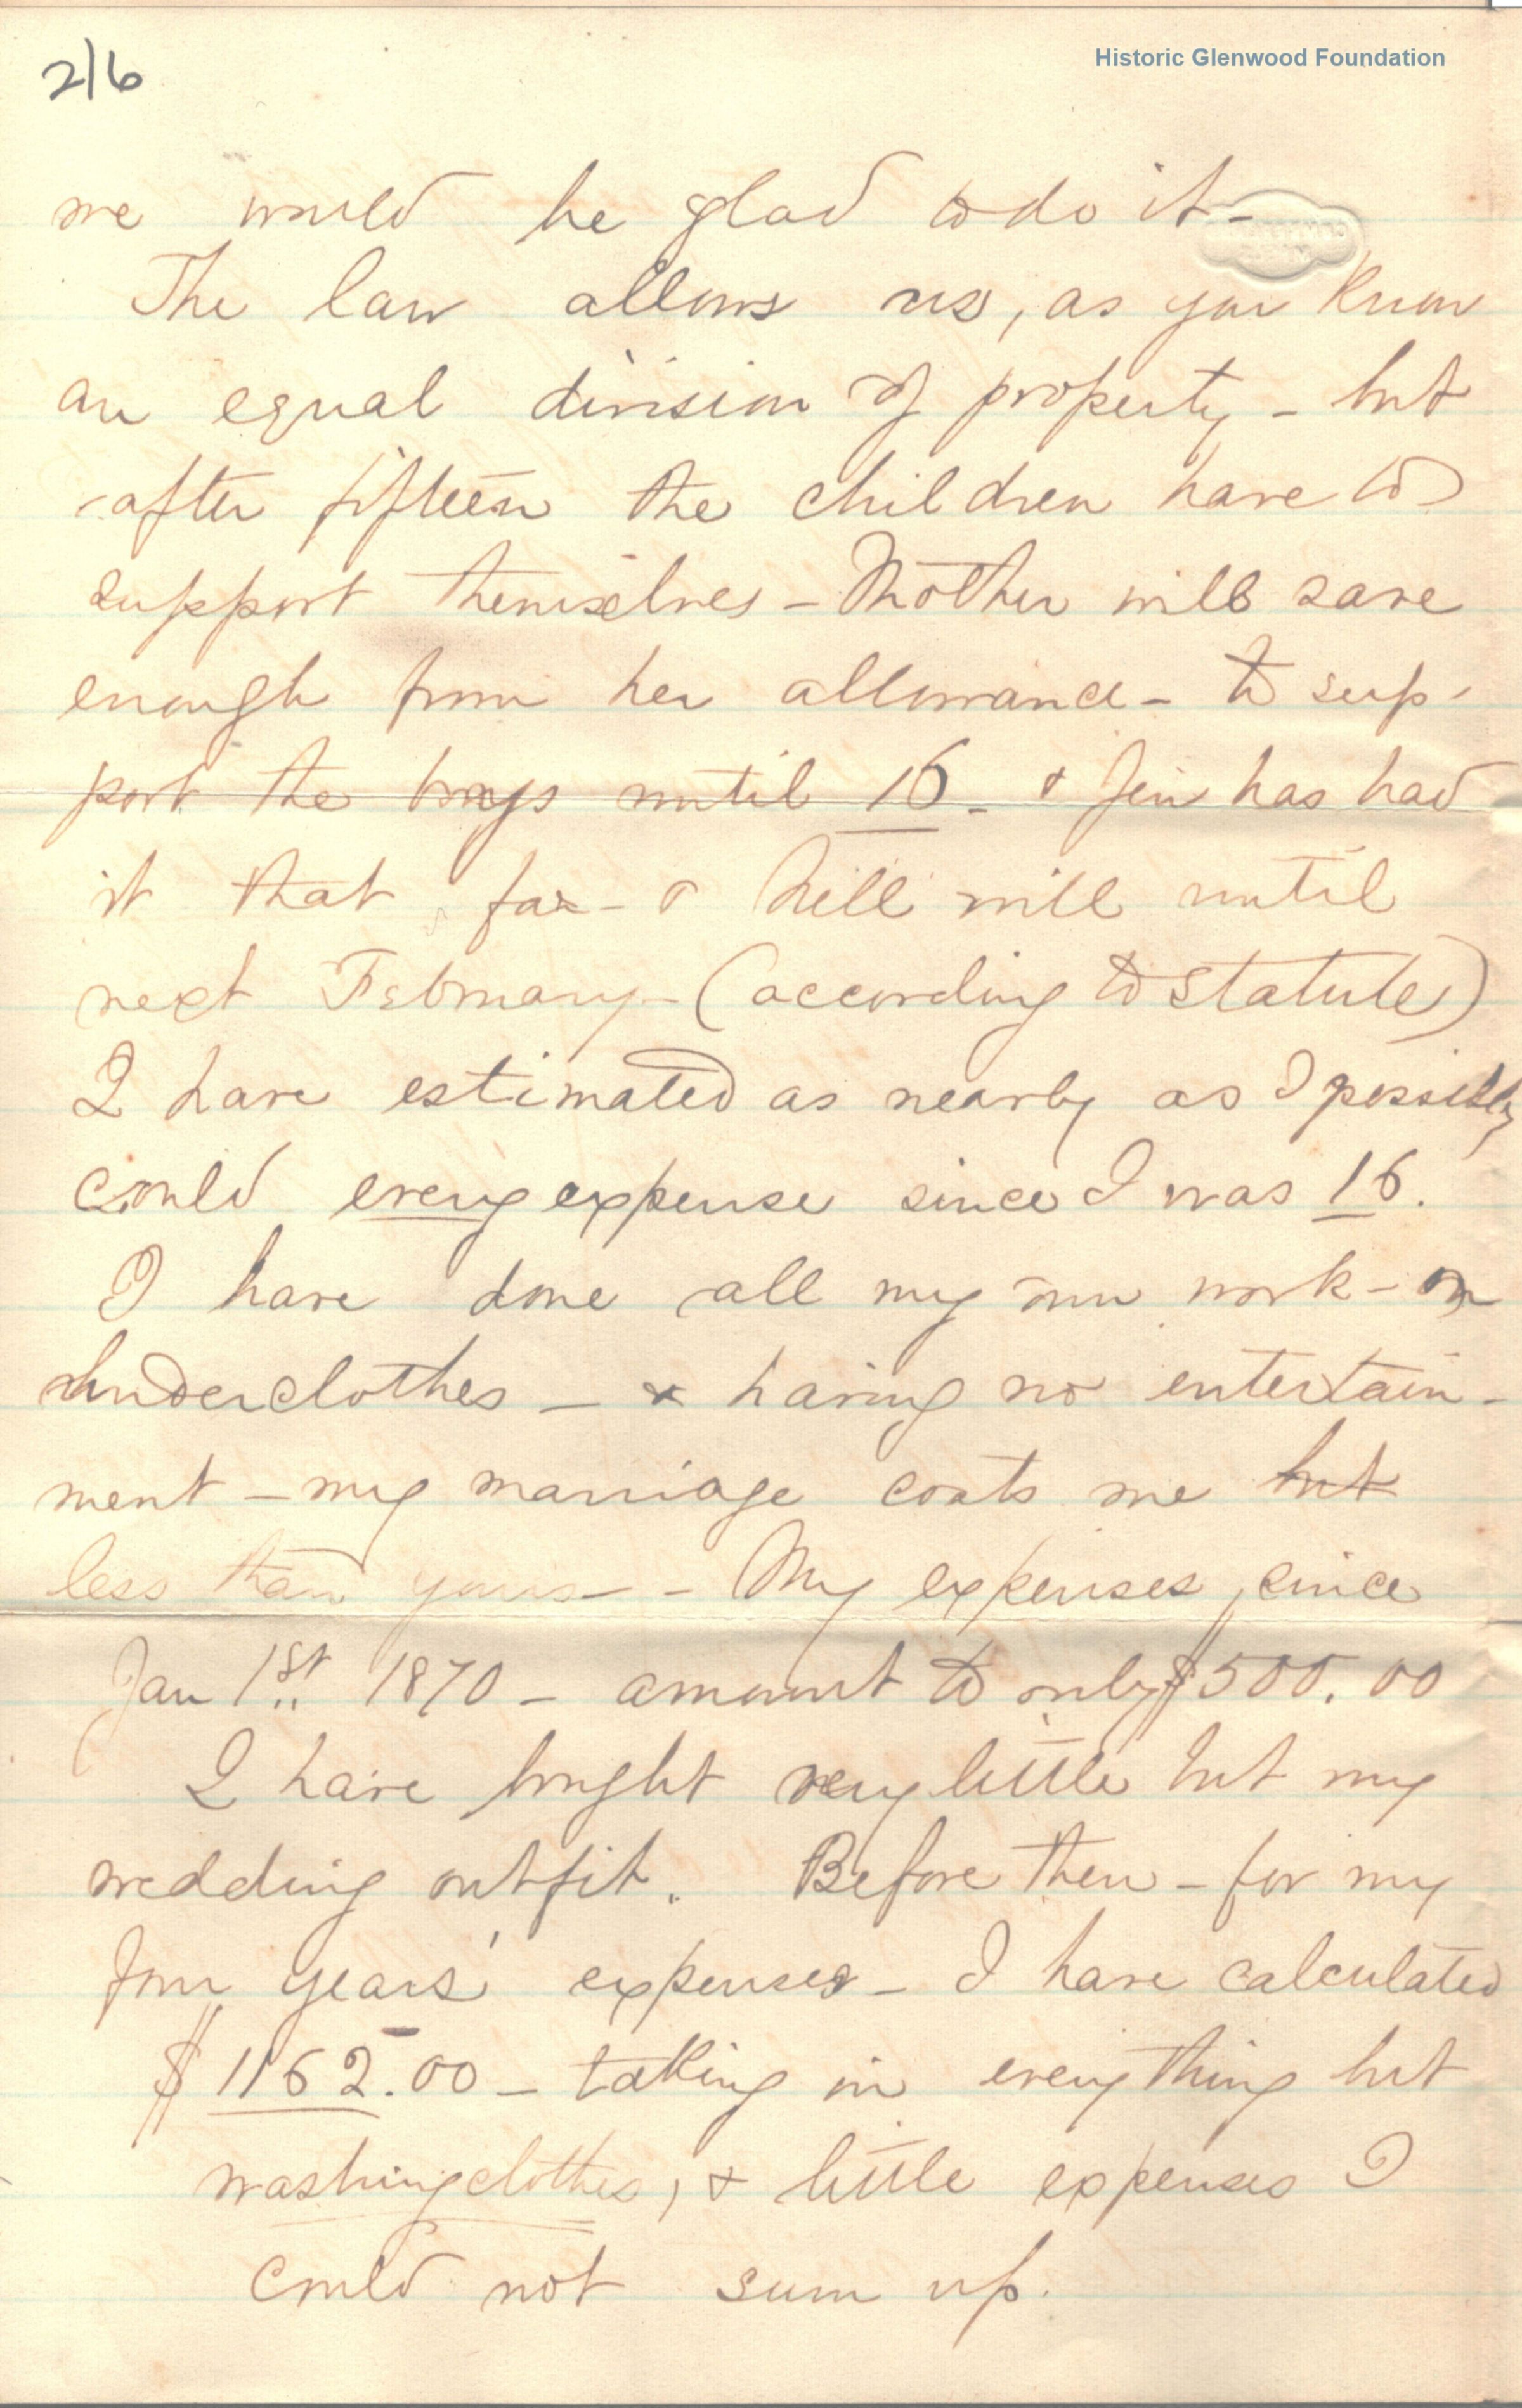 2/6
Historic Glenwood Foundation
we would be glad to do it -
The law allows us, as you know
an equal division of property - but
after fifteen the children have to
support themselves - Mother will save
enough from her allowance - to sup-
port the boys until 16 - & Jen has had
it that far - & Nell will until
next February - (according to statute)
I have estimated as nearly as I possibly
could every expense since I was 16.
I have done all my own work - on
underclothes - & having no entertain-
ment - my marriage costs me but
less than yours - - My expenses, since
Jan 1st 1870 - amount to only $500.00
I have bought very little but my
wedding outfit. Before then - for my
four years' expenses - I have calculated
$1162.00 - taking in everything but
washing clothes, & little expenses I
could not sum up.